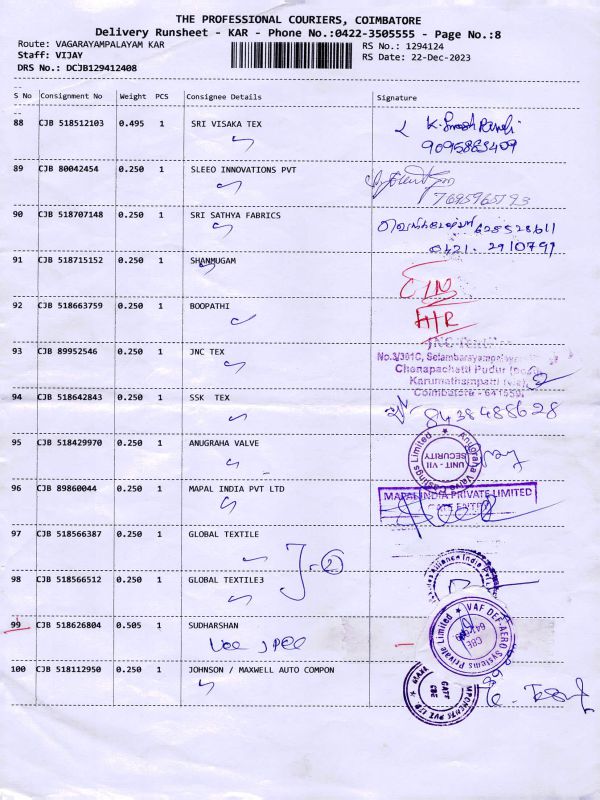 THE PROFESSIONAL COURIERS, COIMBATORE
Delivery Runsheet - KAR - Phone No.:0422-3505555 - Page No.:8
Route: VAGARAYAMPALAYAM KAR RS No.: 1294124
Staff: VIJAY RS Date: 22-Dec-2023
DRS No.: DCJB129412408
S No Consignment No Weight PCS Consignee Details Signature
88 CJB 518512103 0.495 1 SRI VISAKA TEX
9095863409
89 CJB 80042454 0.250 1 SLEEO INNOVATIONS PVT
7695965793
90 CJB 518707148 0.250 1 SRI SATHYA FABRICS
0421. 2910791
91 CJB 518715152 0.250 1 SHANMUGAM
92 CJB 518663759 0.250 1 BOOPATHI
H/R
93 CJB 89952546 0.250 1 JNC TEX
Chenapachatti Pudur
Karumathampatti
Coimbatore - 641659.
94 CJB 518642843 0.250 1 SSK TEX
8438488628
95 CJB 518429970 0.250 1 ANUGRAHA VALVE
Anugraha Valve Castings Limited
UNIT - VII
SECURITY
96 CJB 89860044 0.250 1 MAPAL INDIA PVT LTD
MAPAL INDIA PRIVATE LIMITED
GATE ENTRY
97 CJB 518566387 0.250 1 GLOBAL TEXTILE
98 CJB 518566512 0.250 1 GLOBAL TEXTILE3
99 CJB 518626804 0.505 1 SUDHARSHAN
VAF DEF-AERO Systems Private Limited
CBE
100 CJB 518112950 0.250 1 JOHNSON / MAXWELL AUTO COMPON
GATT
CBE